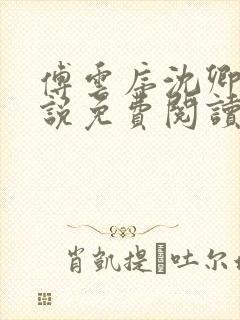 傅雲庭沈卿
說免費閱讀
肖凱提·吐尔